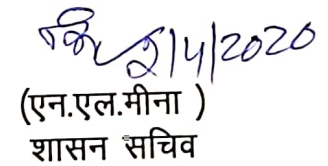 2/4/2020
(एन.एल.मीना )
शासन सचिव